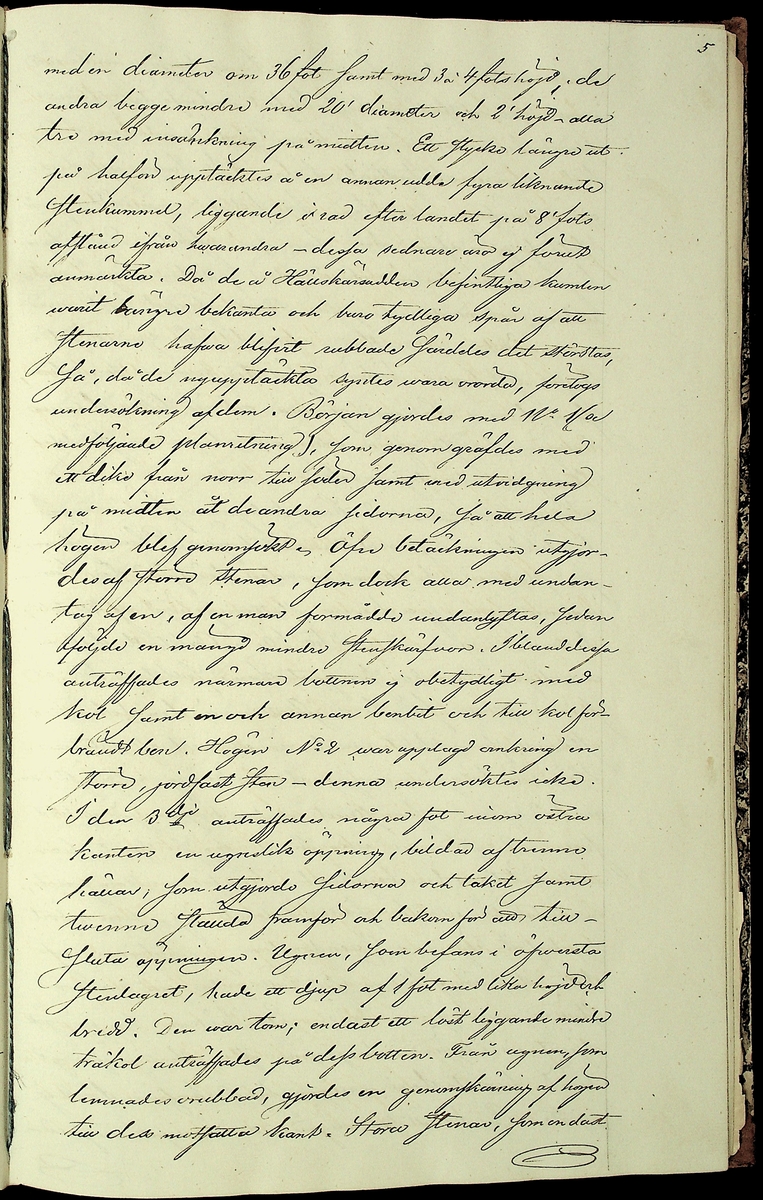 5
med en diameter om 36 fot samt med 3 à 4 fots höjd, de
andra begge mindre med 20' diameter och 2' höjd – alla
tre med insänkning på midten. Ett stycke längre ut
på halfön upptäcktes å en annan udde fyra liknande
stenkummel, liggande i rad efter landet på 8' fots
afstånd ifrån hvarandra – dessa sednare äro ej förut
anmärkta. Då de å Hänskärsudden befintliga kumlen
warit längre bekanta och buro tydliga spår af att
stenarne hafwa blifvit rubbade särdeles det största,
så, då de nyupptäckta syntes wara orörda, företogs
undersökning af dem. Början gjordes med No 1 (se
medföljande planritning), som genomgräfdes med
ett dike från norr till söder samt med utvidgning
på midten åt de andra sidorna, så att hela
högen blef genomsökt. Öfre betäckningen utgjor-
des af större stenar, som dock alla med undan-
tag af en, af en man förmådde undanlyftas, sedan
följde en mängd mindre stenskärfvor. Ibland dessa
anträffades närmare bottnen ej obetydligt med
kol samt en och annan benbit och till kol för-
brändt ben. Högen No 2 war upplagd omkring en
större, jordfast sten – denna undersöktes icke.
I den 3dje anträffades några fot inom östra
kanten en ugnslik öppning, bildad af trenne
hällar, som utgjorde sidorna och taket samt
twenne stånda framför och bakom för att till-
sluta öppningen. Ugnen, som befans i öfwersta
stenlagret, hade ett djup af 1 fot med lika höjd och
bredd. Den war tom; endast ett löst liggande mindre
träkol anträffades på dess botten. Från ugnen, som
lemnades orubbad, gjordes en genomskärning af högen
till dess motsatta kant. Stora stenar, som endast